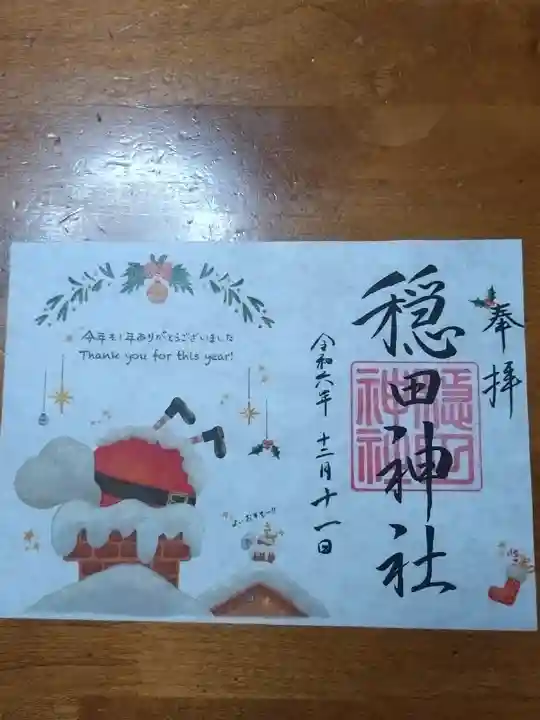 奉拝
穏田神社
穏田
神社
令和六年 十二月十一日
今年も1年ありがとうございました
Thank you for this year!